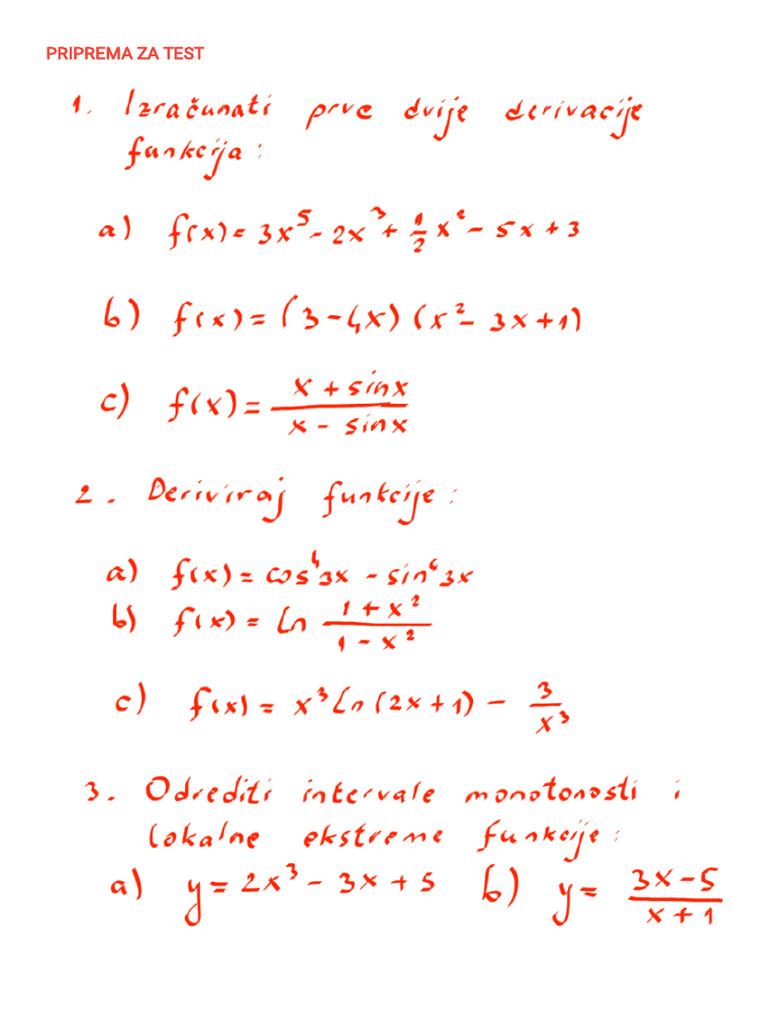 PRIPREMA ZA TEST
1. Izračunati prve dvije derivacije
funkcija:
a) f(x) = 3x⁵ - 2x³ + 1/2 x² - 5x + 3
b) f(x) = (3 - 4x) (x² - 3x + 1)
c) f(x) = (x + sinx)/(x - sinx)
2. Deriviraj funkcije:
a) f(x) = cos⁴3x - sin⁶3x
b) f(x) = ln (1 + x²)/(1 - x²)
c) f(x) = x³ln(2x + 1) - 3/x³
3. Odrediti intervale monotonosti i
lokalne ekstreme funkcije:
a) y = 2x³ - 3x + 5 b) y = (3x - 5)/(x + 1)